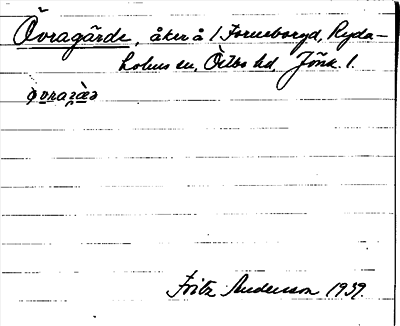 Övragärde, åker å 1 Forneboryd, Ryda-
holms sn, Östbo hd, Jönk. l.
Fritz Anderson 1939.